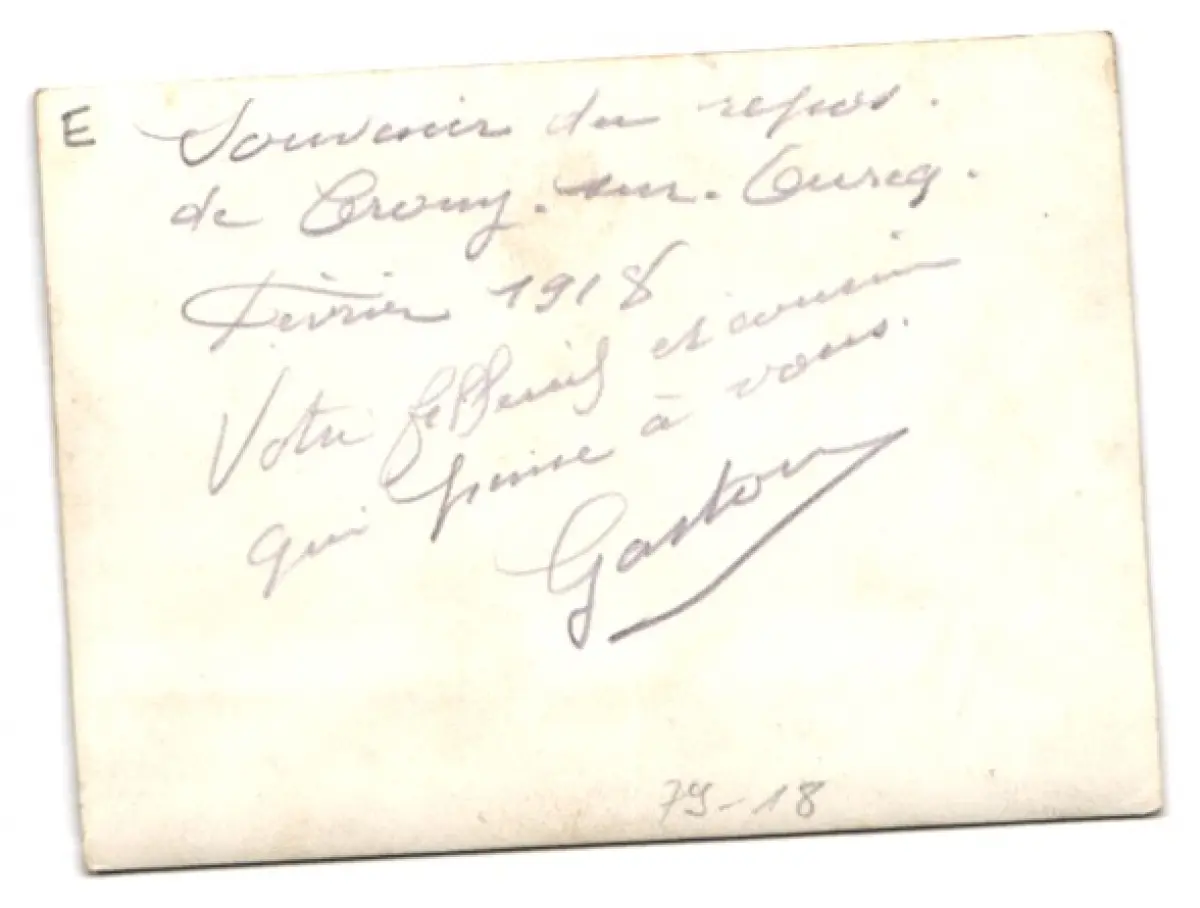 E
Souvenir du repos.
de Crouy-sur-Ourcq.
Février 1918
Votre filleuil et cousin
qui pense à vous.
Gaston
79-18